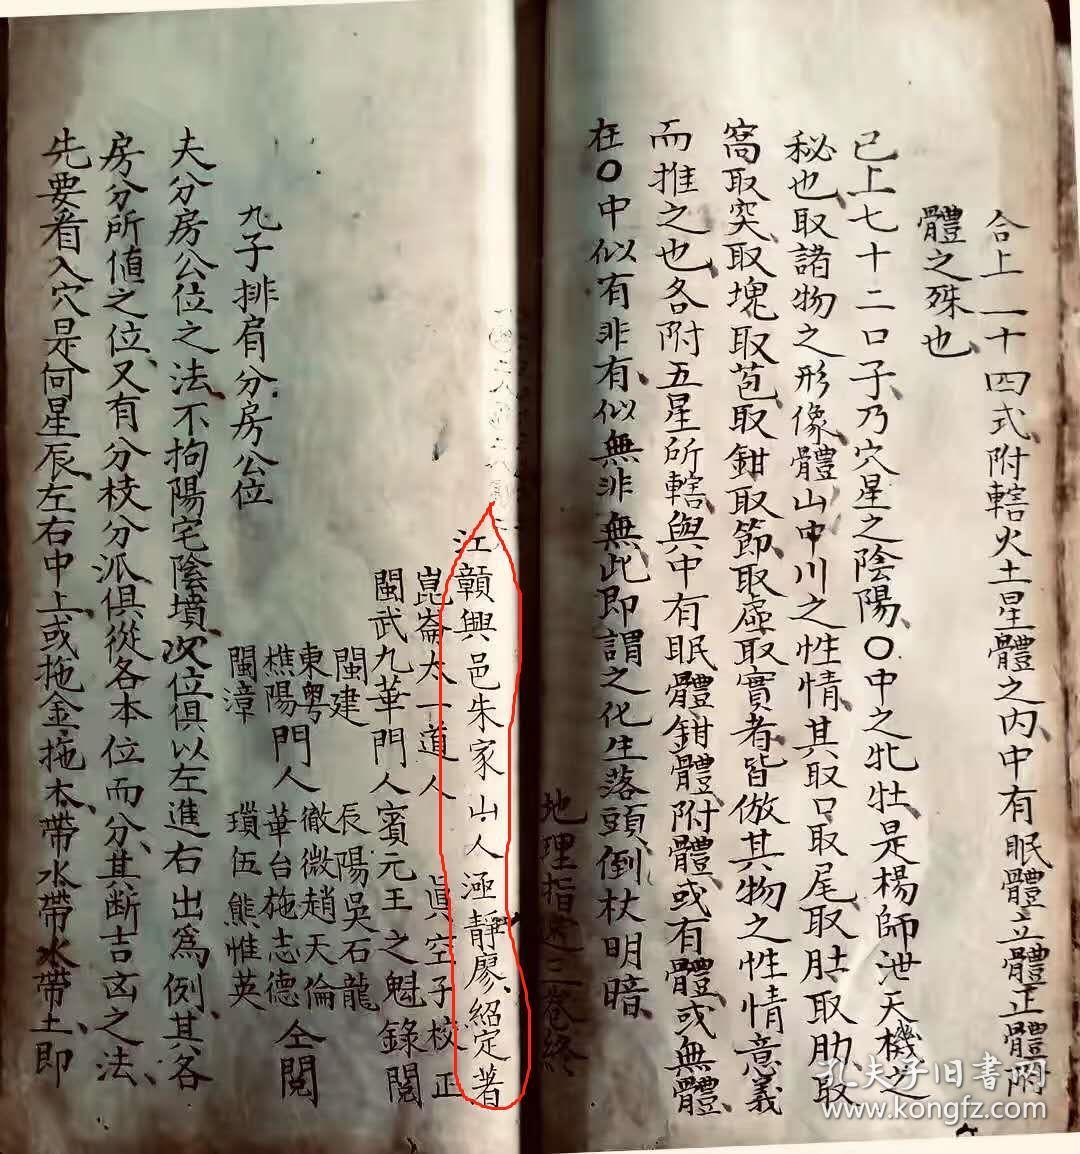 合上一十四式附轄火土星體之内、中有眠體立體正體附
體之殊也、
已上七十二口子乃穴星之陰陽、〇中之牝牡、是楊師泄天機之
秘也、取諸物之形像、體山中川之性情、其取口取尾、取肚、取肋、取
窩、取突、取塊、取苞、取鉗、取節、取虛、取實者、皆倣其物之性情意義
而推之也、各附五星所轄、與中有眠體鉗體、附體、或有體、或無體、
在〇中似有非有、似無非無、此即謂之化生落頭、倒杖明暗、
地理指 三卷終
江贛興邑朱家山人極靜廖紹定著
崑崙太一道人 眞空子校正
閩武九華門人賓元王之魁錄閲
閩建 辰陽吳石龍
東粤 徹微趙天倫
樵陽門人 華台施志德 仝閲
閩漳 瓚伍熊惟英
九子排肩分房公位
夫分房公位之法、不拘陽宅陰墳、次位俱以左進右出爲例、其各
房分所値之位、又有分枝分派、俱從各本位而分、其断吉凶之法、
先要看入穴是何星辰、左右中上、或拖金、拖木、帶水帶火帶土、即
孔夫子旧书网
www.kongfz.com